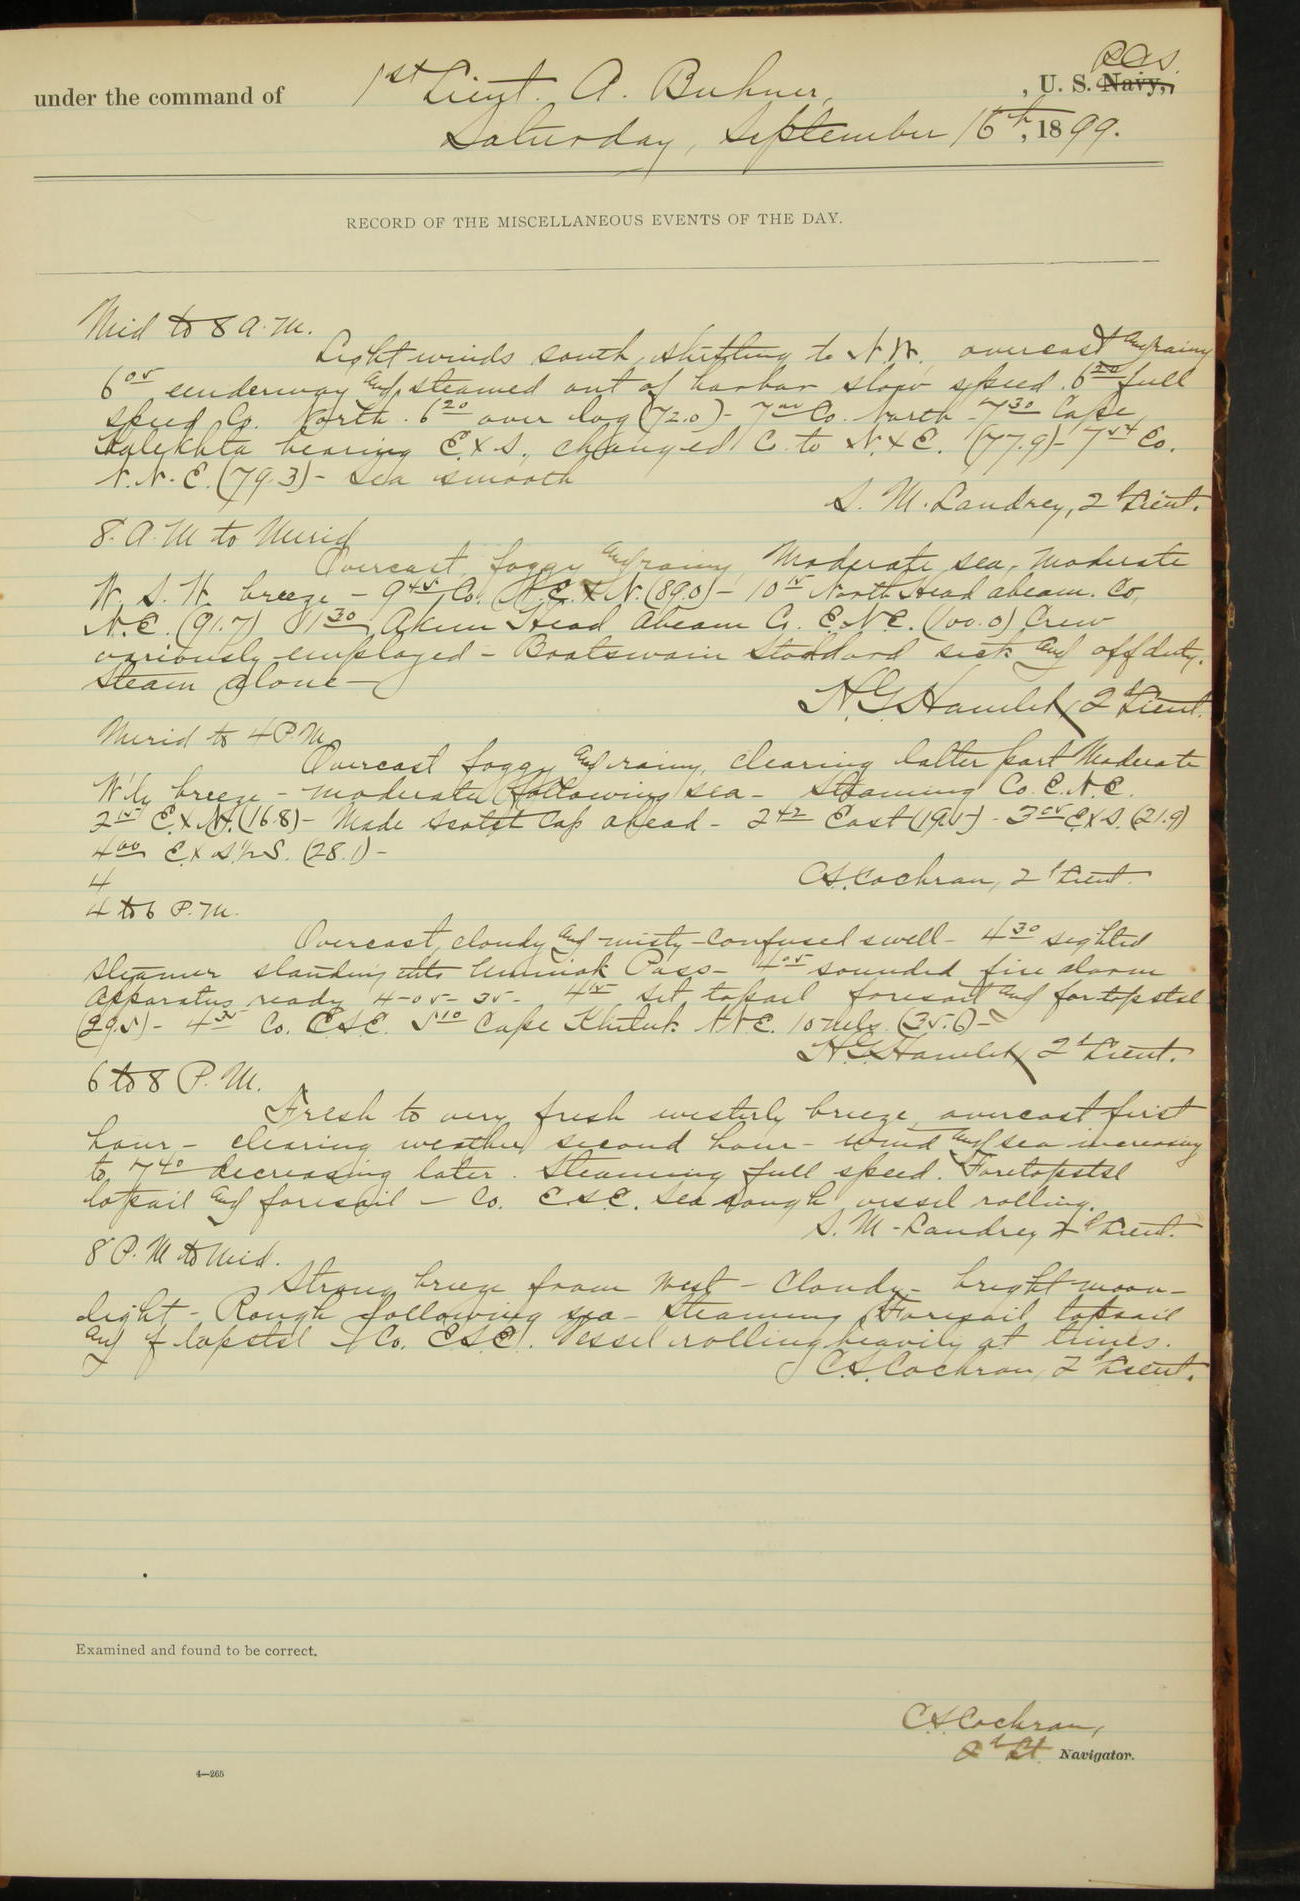 under the command of 1st Lieut. A. Buhner, U. S. Navy, R.C.S.
Saturday, September 16th, 1899.
RECORD OF THE MISCELLANEOUS EVENTS OF THE DAY.
Mid to 8 A.M.
Light winds south, shifting to N.W., overcast and rainy
6 05 underway and steamed out of harbor slow speed. 6 20 full
speed Co. North. 6 20 over log (72.0) - 7 00 Co. North - 7 30 Cape
Kalekhta bearing E. x S., changed Co. to N. x E. (77.9) - 7 54 Co.
N.N.E. (79.3) - Sea smooth
S. M. Landrey, 2d Lieut.
8. A. M to Merid
Overcast, foggy and rainy, Moderate sea, moderate
W. S. W. breeze - 9 45 Co. N.E. x N. (89.0) - 10 15 North Head abeam. Co,
N.E. (91.7) 11 30 Akun Head abeam Co. E.N.E. (100.0) Crew
variously employed - Boatswain Stoddard sick and off duty.
Steam alone -
H.G. Hamlet, 2d Lieut.
Merid to 4 P.M.
Overcast foggy and rainy, clearing latter part Moderate
W'ly breeze - moderate following sea - Steaming Co. E.N.E.
2 15 E. x N. (16.8) - Made Scotch Cap ahead - 2 42 East (19.5) - 3 05 E x S. (21.9)
4 00 E. x S. 1/2 S. (28.1) -
4
C.S. Cochran, 2d Lieut.
4 to 6 P.M.
Overcast, cloudy and misty - confused swell - 4 30 sighted
steamer standing into Unimak Pass - 4 05 sounded fire alarm
apparatus ready 4-05-35 - 4 15 set topsail foresail and foretopstsl
(29.5) - 4 35 Co. E.S.E. 5 10 Cape Khituk N.N.E. 10 mls. (35.6) -
H.G. Hamlet, 2d Lieut.
6 to 8 P. M.
Fresh to very fresh westerly breeze, overcast first
hour - clearing weather second hour - wind and sea increasing
to 7 40 decreasing later. Steaming full speed. Foretopstsl
topsail and foresail - Co. E.S.E. Sea rough vessel rolling.
S. M. Landrey 2d Lieut.
8 P. M to Mid.
Strong breeze from West - Cloudy - bright moon-
light - Rough following sea - Steaming Foresail topsail
and f topstsl - Co. E.S.E. Vessel rolling heavily at times.
C.S. Cochran, 2d Lieut.
Examined and found to be correct.
C.S. Cochran,
2d Lt. Navigator.
4—265